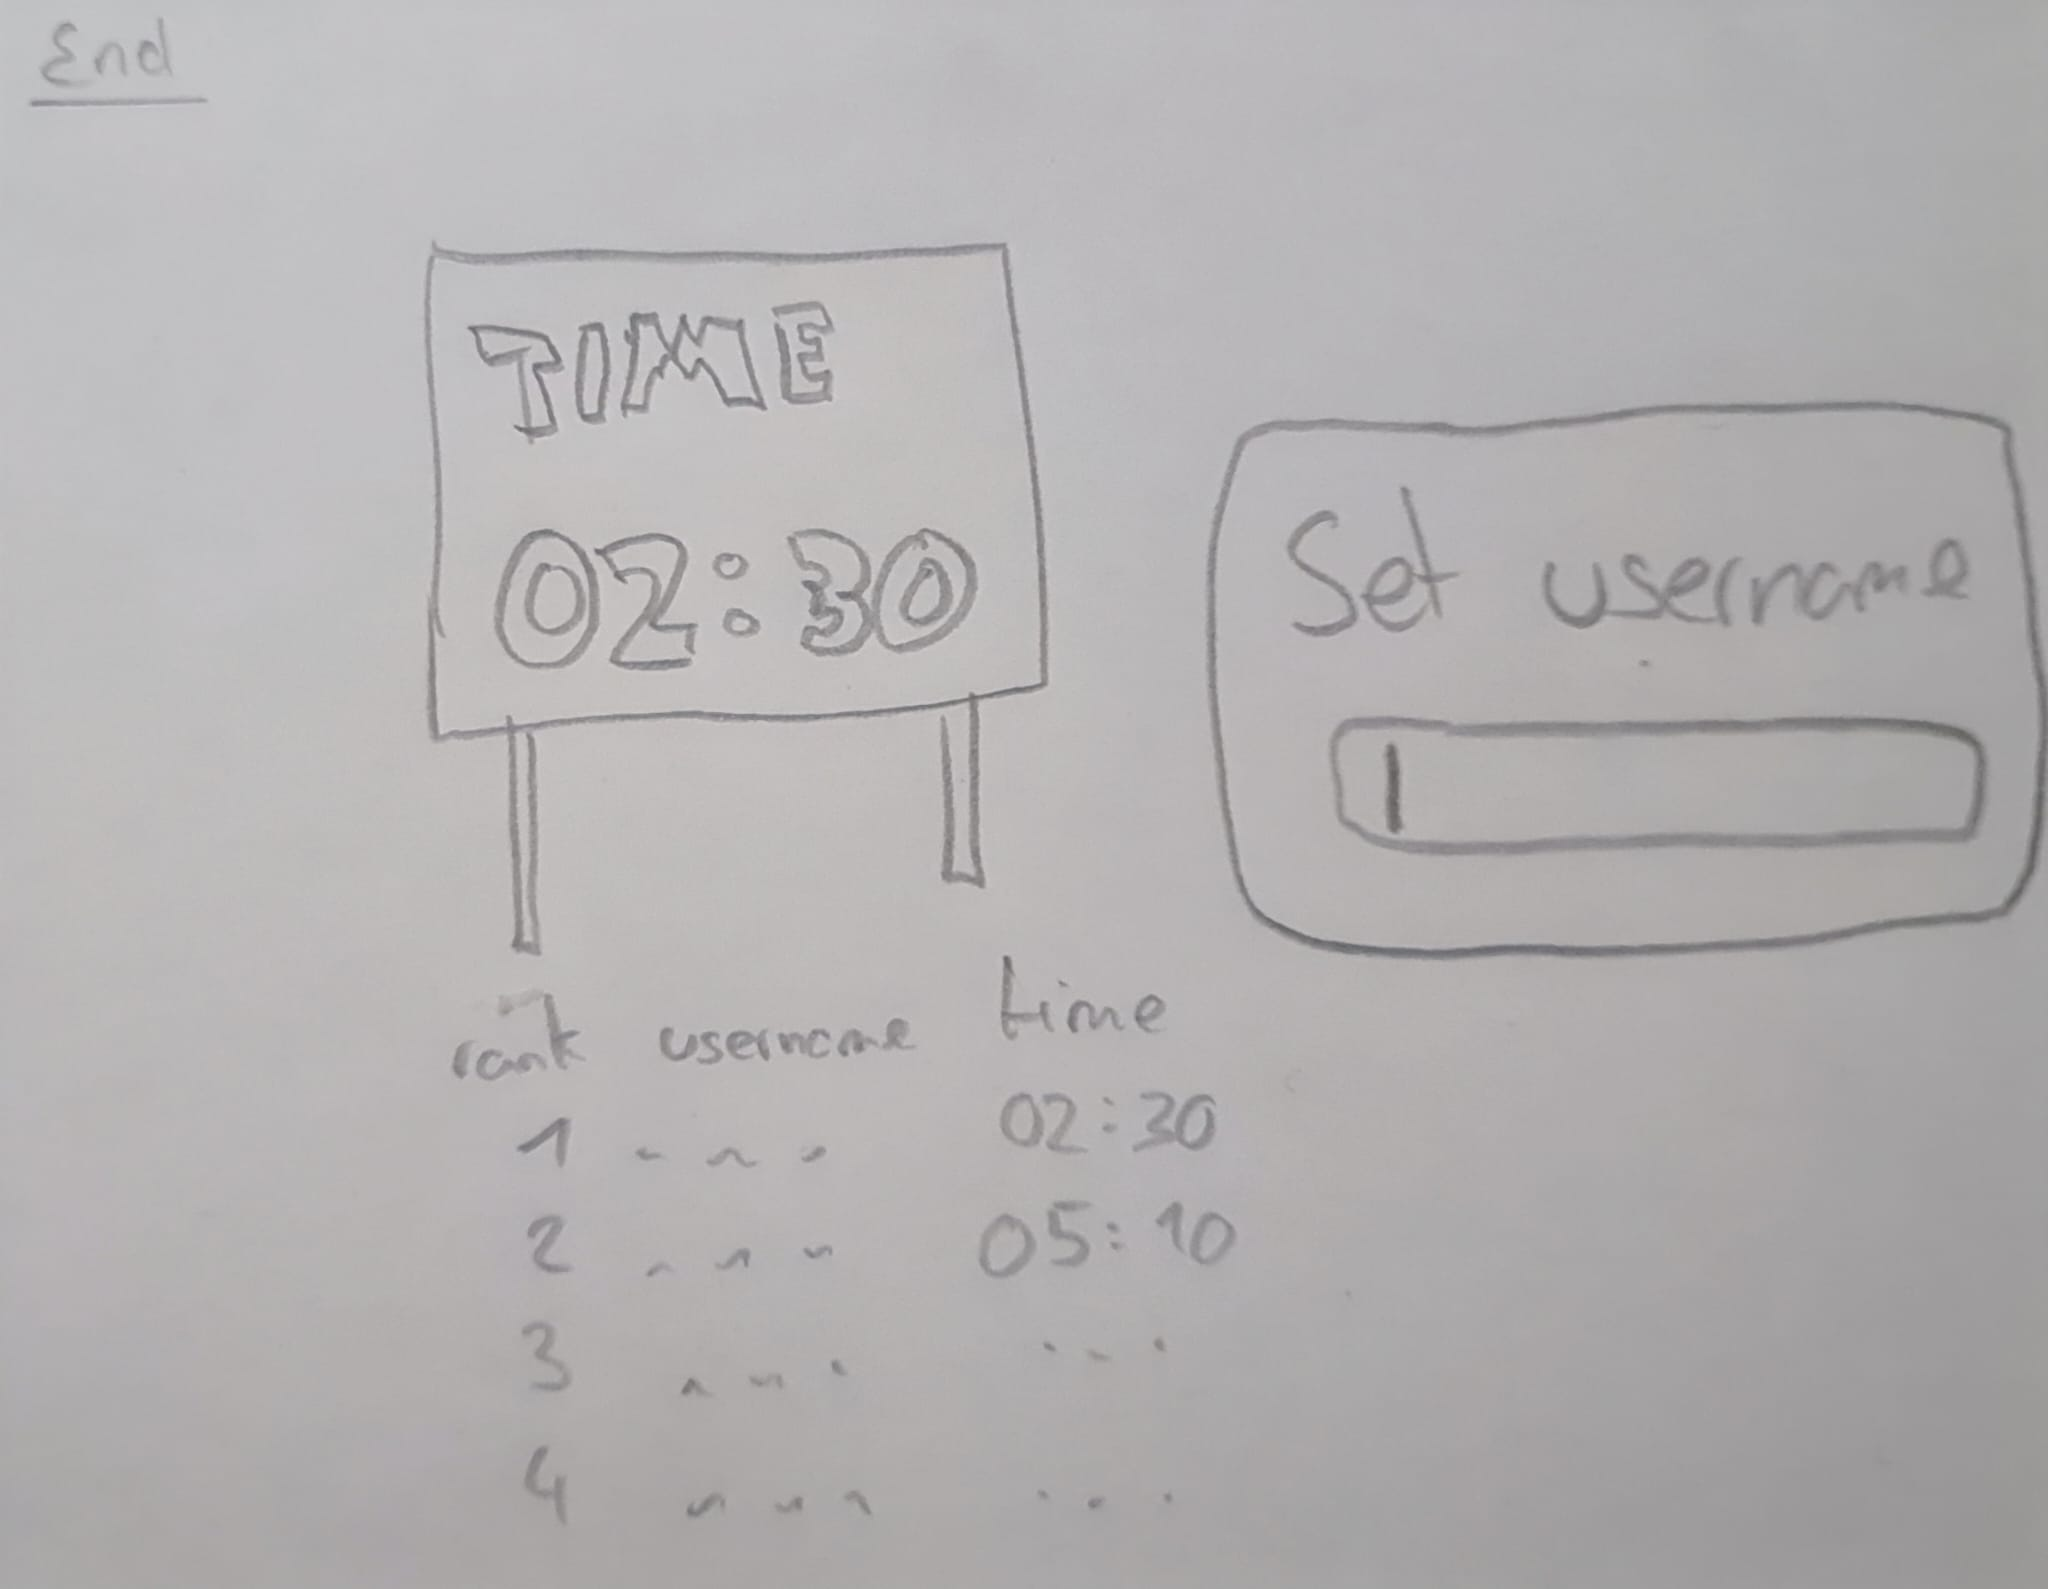 End
TIME
02:30
Set username
rank username time
1 - ~ - 02:30
2 - ~ ~ 05:10
3 - ~ - . - .
4 ~ ~ ~ . . .